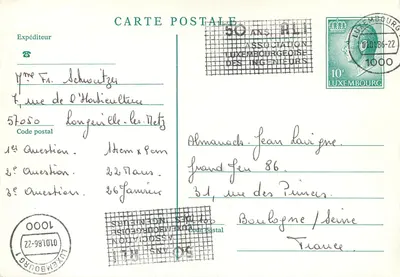 CARTE POSTALE
Expéditeur
Mme Fr. Schweitzer
7, rue de l'Horticulture
57050 Longeville-les-Metz
Code postal
1re Question. 14cm x 9cm
2e Question. 22 Mars
3e Question. 26 Janvier
50 ANS ALI
ASSOCIATION
LUXEMBOURGEOISE
DES INGENIEURS
LUXEMBOURG
01.01.86-22
1000
10F
LUXEMBOURG
Almanach Jean Lavigne
Grand Jeu 86
31, rue des Princes
Boulogne/Seine
code postal
France
LUXEMBOURG 1
01.01.86-22
1000
50 ANS ALI
ASSOCIATION
LUXEMBOURGEOISE
DES INGENIEURS